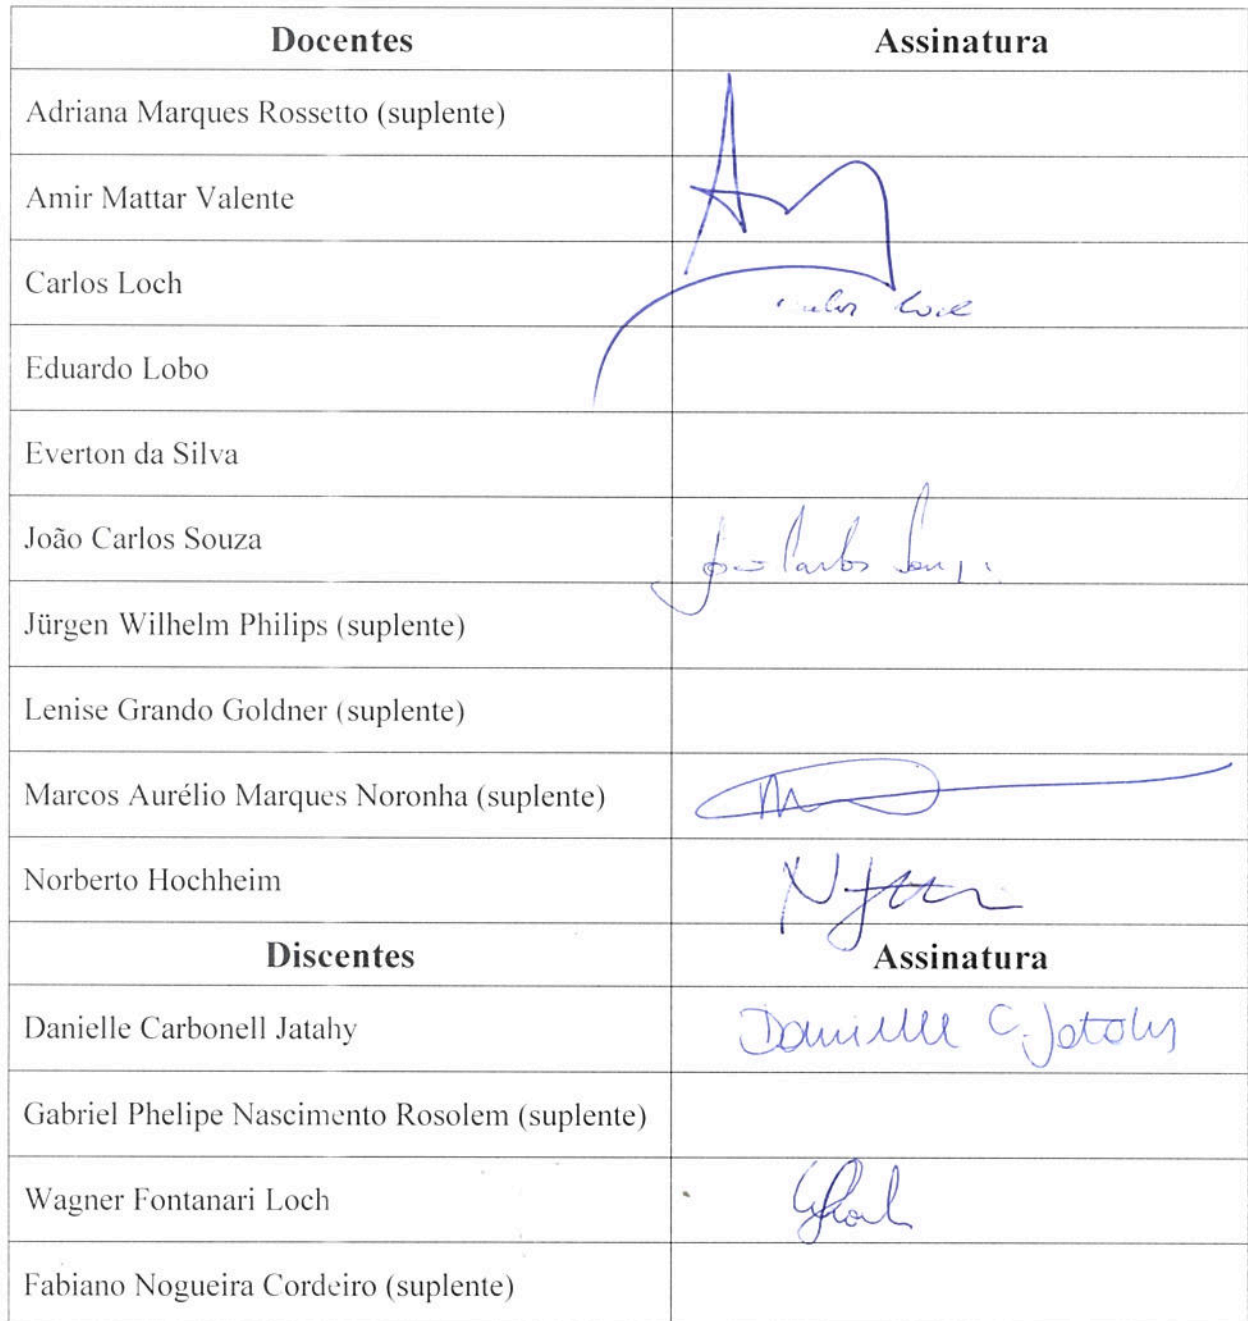 Docentes Assinatura
Adriana Marques Rossetto (suplente)
Amir Mattar Valente
Carlos Loch
Eduardo Lobo
Everton da Silva
João Carlos Souza João Carlos Souza
Jürgen Wilhelm Philips (suplente)
Lenise Grando Goldner (suplente)
Marcos Aurélio Marques Noronha (suplente)
Norberto Hochheim
Discentes Assinatura
Danielle Carbonell Jatahy Danielle C. Jatahy
Gabriel Phelipe Nascimento Rosolem (suplente)
Wagner Fontanari Loch
Fabiano Nogueira Cordeiro (suplente)